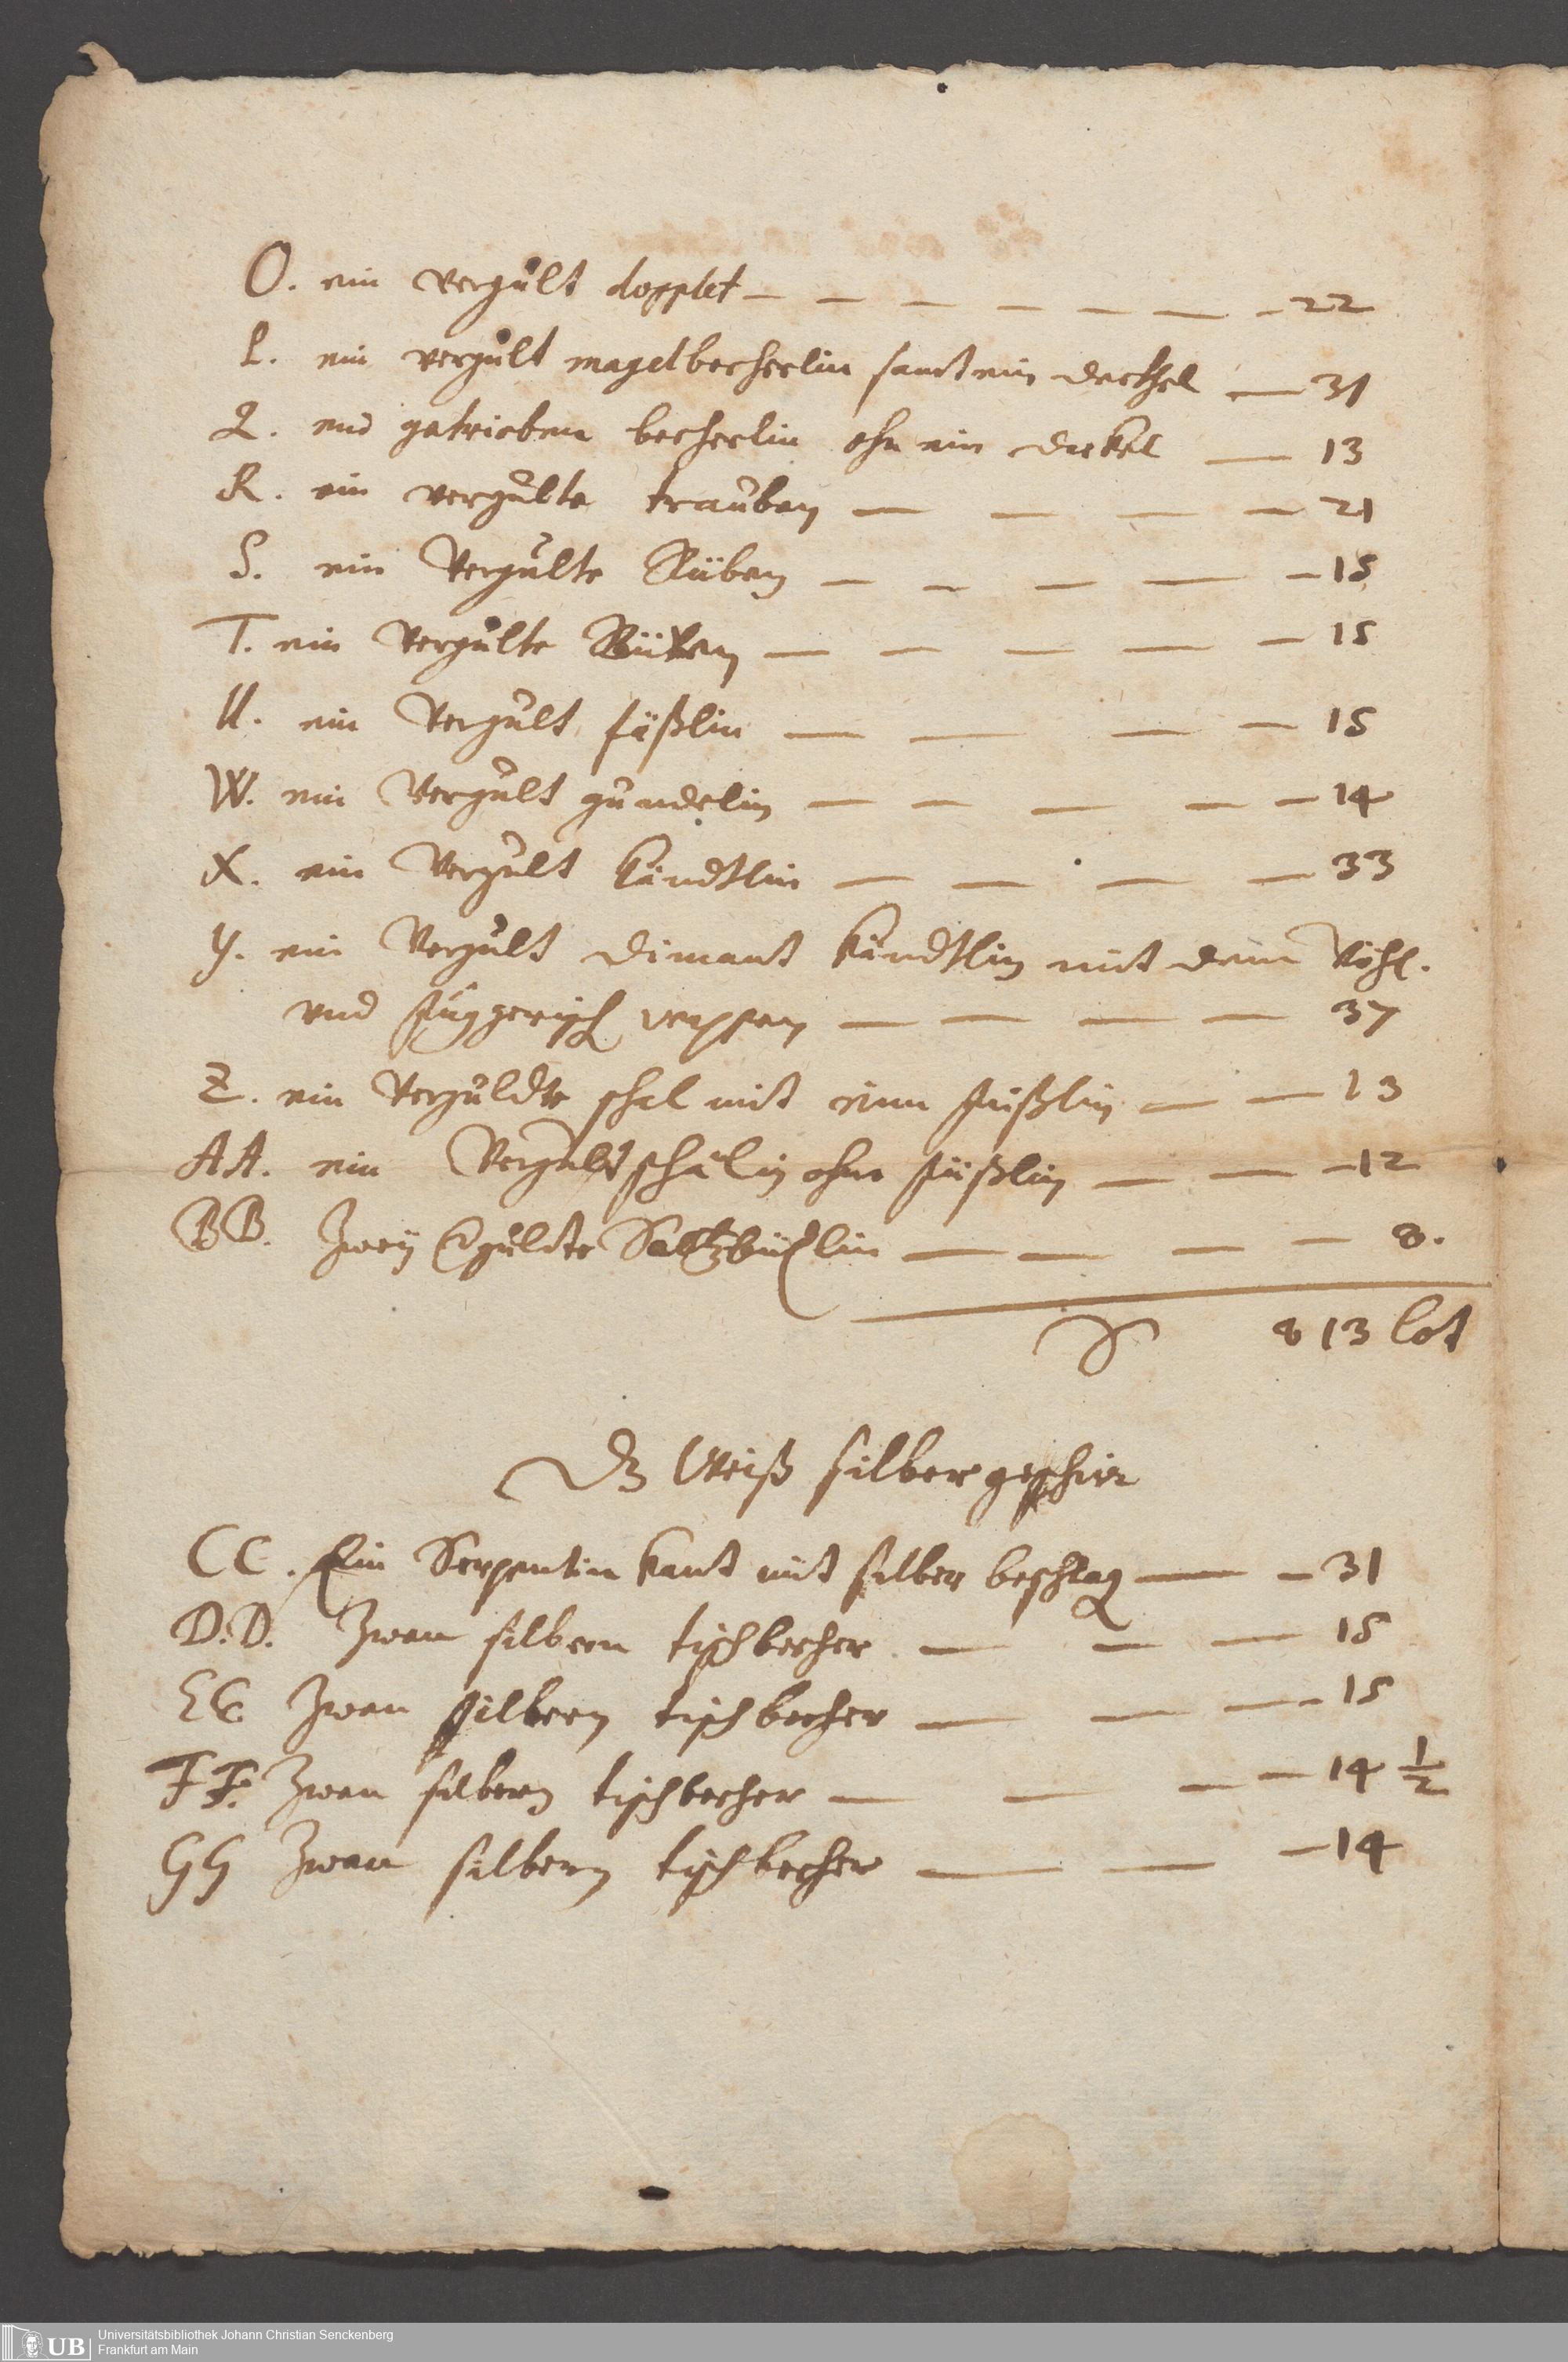 O. ein vergult dopplet — — — — — — — 22
P. ein vergult magelbecherlin samt ein deckhel — 31
Q. ein getrieben becherlin ohn ein deckel — 13
R. ein vergulte trauben — — — — 21
S. ein Vergulte Rüben — — — — — 15
T. ein Vergulte Rüben — — — — — 15
U. ein Vergult fäßlin — — — — 15
W. ein Vergult gundelin — — — — — 14
X. ein Vergult kändtlin — — — — 33
Y. ein Vergult dimant kändtlin mit dem
und fuggerisch wappen — — — — 37
Z. ein Verguldte schal mit eim füßlin — — 13
AA. ein Vergult schälin ohne füßlin — — — 12
BB. Zwey Vguldte Saltzbüchslin — — — — 8.
813 lot
Dz Weiß silber geschir
CC. Ein Serpentin kant mit silber beschlag — — 31
D.D. Zwen silbern tischbecher — — — 15
EE Zwen silbern tischbecher — — — 15
FF. Zwen silbern tischbecher — — — — 14 1/2
GG Zwen silbern tischbecher — — — 14
UB Universitätsbibliothek Johann Christian Senckenberg
Frankfurt am Main